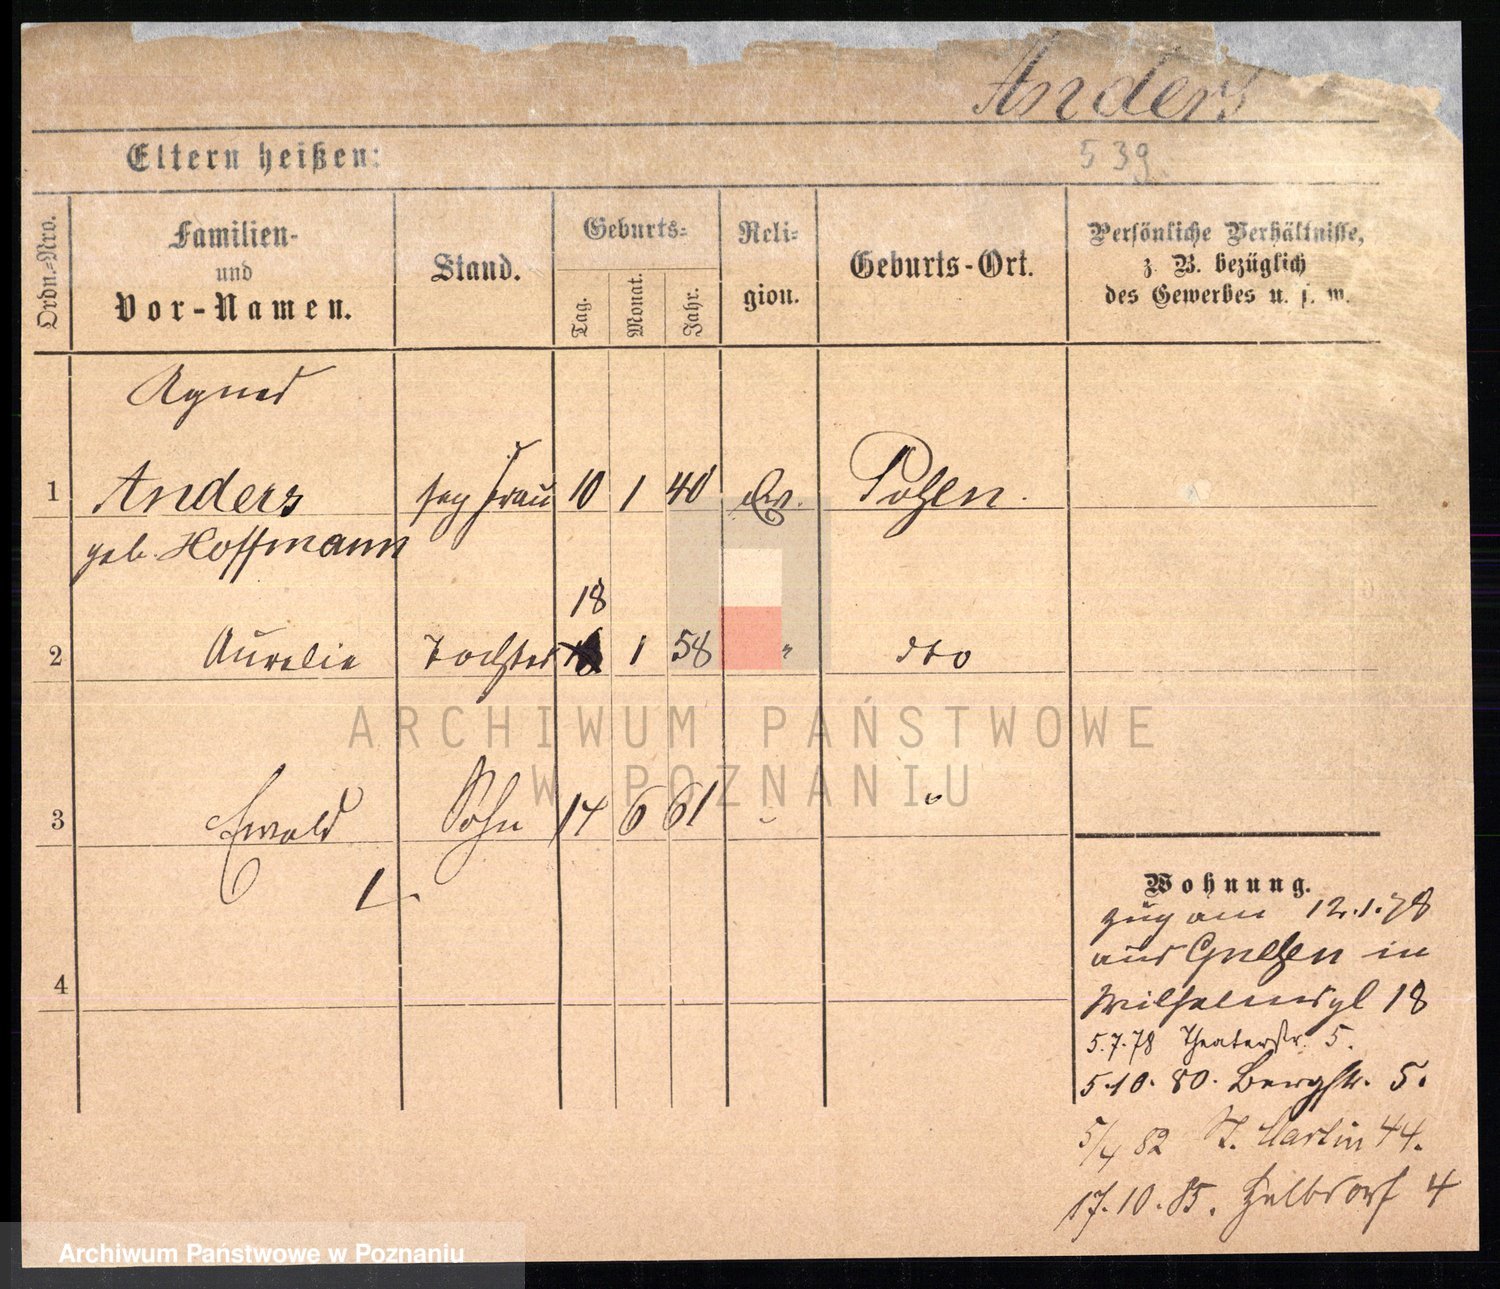 Anders
Eltern heißen:
539.
Ordn.-Nro.
Familien-
und
Vor-Namen.
Stand.
Geburts-
Tag.
Monat.
Jahr.
Reli-
gion.
Geburts-Ort.
Persönliche Verhältnisse,
z. B. bezüglich
des Gewerbes u. s. w.
Agnes
1 Anders Frau 10 1 40 Ev. Posen.
geb. Hoffmann
18
2 Aurelie Tochter 1 58 " dto
3 Ewald Sohn 14 6 61 " "
4
Wohnung.
zug am 12.1.78
aus Gnesen in
Wilhelmspl 18
5.7.78 Theaterstr. 5.
5.10.80. Bergstr. 5.
5/4 82 St. Martin 44.
17.10.85. Halbdorf 4
ARCHIWUM PAŃSTWOWE
W POZNANIU
Archiwum Państwowe w Poznaniu